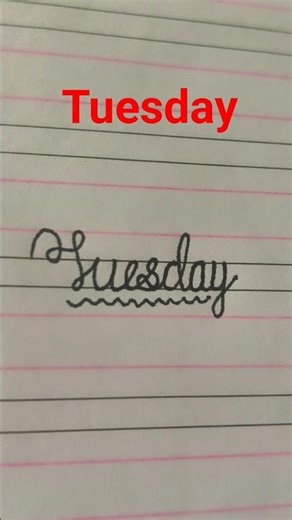 Tuesday
Tuesday